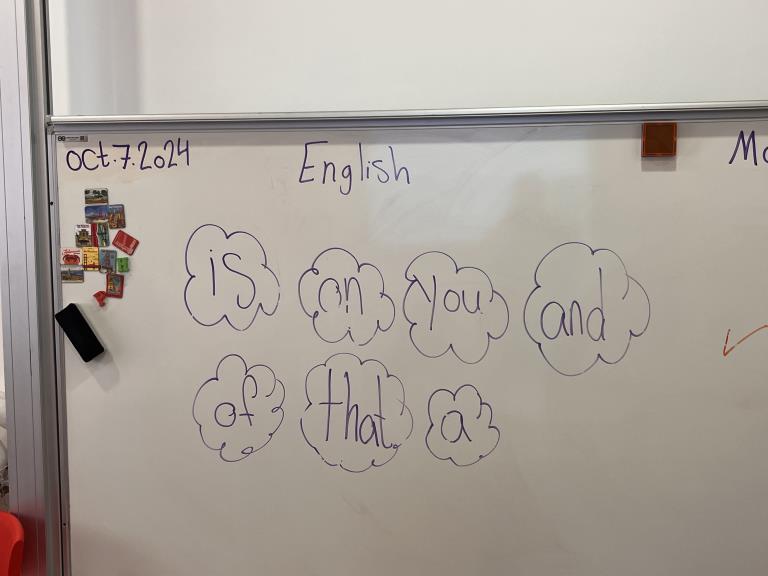 oct.7.2024
English
is on you and
of that a